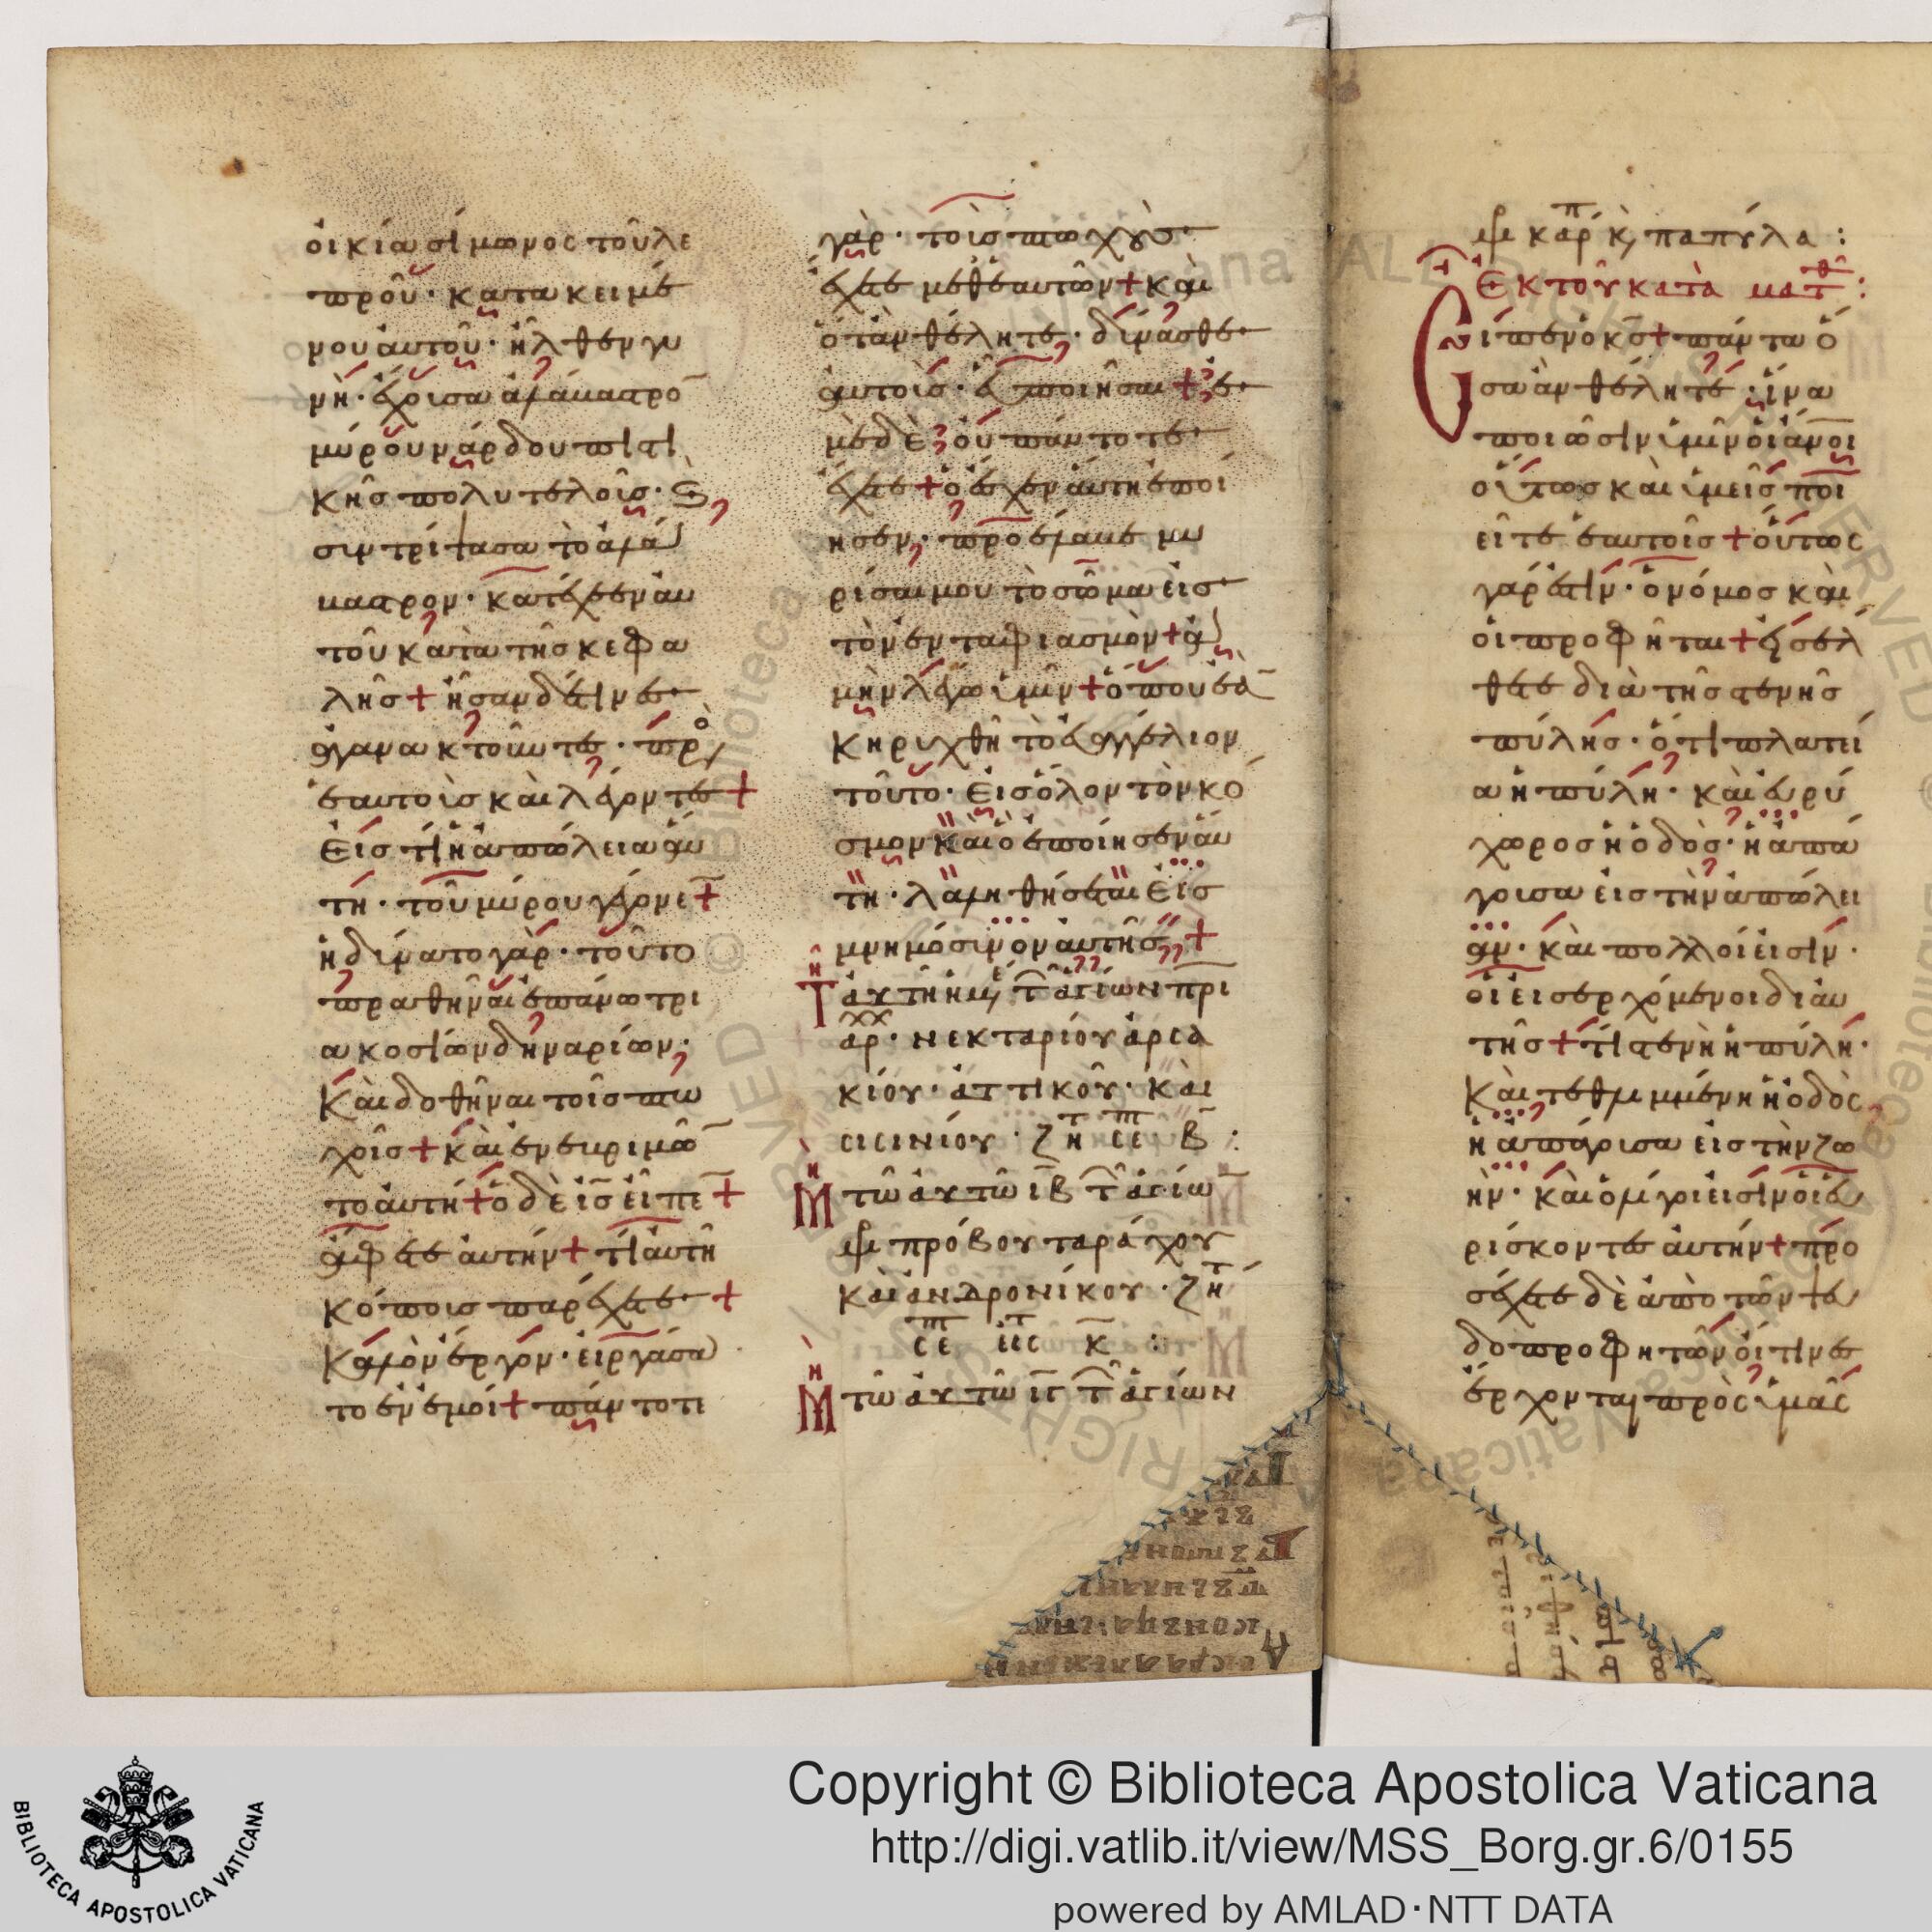 οἰκία σίμωνος τοῦ λε
προῦ· κατακειμέ
νου αυτοῦ· ἦλθεν γυ
νὴ· ἔχοισα ἀλάμαστρο
μύρου νάρδου πιστι
κῆς πολυτελοῖς· καὶ
σιντρίψασα τὸ ἀλά
μαστρον· κατέχεεν αυ
τοῦ κατὰ τῆς κεφα
λῆς + ἦσαν δέ τινες
ἀγανακτοῦντες· πρὸ
εαυτοὶς καὶ λέγοντες +
εἰς τί ἡ ἀπώλεια αύ
τή· τοῦ μύρου γέγονε +
ἠδίνατο γὰρ· τοῦτο
πραθῆναι ἐπάνω τρι
ακοσίων δηναρίων·
Καὶ δοθῆναι τοῖς πτω
χοῖς + καὶ ενευριμῶ
το ἀυτή + ὁ δὲ ις εἶπε +
ἄφετε ἀυτήν + τί ἀυτῆ
κόποις παρέχετε +
Καλὸν έργον· εἰργάσα
το ἐν ἐμοί + πάντοτι
γὰρ· τοὶς πτωχοὺς·
ἔχετε μεθεαυτῶν + καὶ
ὁτὰν θέλητε· δίνασθε·
ἀυτοὶς· εὖ ποιῆσαι + ε·
μὲ δὲ οὐ πάντοτε·
έχετε + ὃ ἔσχεν ἀυτη ἐποί
ησεν· προέλαυε μυ
ρίσαι μου τὸ σῶμα εἰς
τὸν ενταφιασμὸν + ἀ
μὴν λέγω ὑμῖν + ὅπου εὰ
Κηριχθῆ τὸ ἐυαγγέλιον
τοῦτο· Εἰς όλον τὸν κό
σμον καὶ ὃ ἐποίησεν ἄυ
τη· λαληθήσεται Εἰς
μνημόσινον αυτῆς +
Τῆ ἀυτῆ ἡμ τ ἁγίων πρι
αρ· νεκταρίου ἀρσα
κίου· ἀττικοῦ· καὶ
σισινίου· ζη τ σε m Β :
Μη τῶ ἀυτῶ ιβ τ ἁγίω
μ προβου ταράχου
Καὶ ἀνδρονίκου· ζη τ
σε m εις τ κ :
Μη τῶ ἀυτῶ ιγ τ ἁγίων
μ καρπ κ, παπύλα :
Ἐκ τοῦ κατὰ ματθ :
Εἶπεν ὁ κς + πάντα ὅ
σα ὰν θέλητε· ἵνα
ποιῶσιν ὑμῖν οἱ ἀνοι
οὕτως καὶ ὑμεῖς ποι
εῖτε ἑαυτοῖς + οὕτως
γάρ ἐστιν· ὁ νόμος καὶ
οἱ προφῆται + εἰσέλ
θετε διὰ τῆς στενῆς
πύλης· ὅτι πλατεί
α ἡ πύλη· καὶ ευρύ
χωρος ἡ ὁδὸς· ἡ ἀπά
γοισα εἰς τὴν ἀπώλει
αν· καὶ πολλοί εἰσιν·
οἱ εἰσερχόμενοι δι ἀυ
τῆς + τί στενὴ ἡ πύλη·
Καὶ τεθλιμμένη ἡ ὁδὸς
ἡ ἀπάγοισα εἰς τὴν ζω
ήν· καὶ ὀλίγοι εἰσὶν οἱ εὑ
ρίσκοντες ἀυτήν + προ
σέχετε δὲ ἀπὸ τῶν ψευ
δοπροφητῶν οἵτινες
έρχονται πρὸς ὑμᾶς
BIBLIOTECA APOSTOLICA VATICANA
Copyright © Biblioteca Apostolica Vaticana
http://digi.vatlib.it/view/MSS_Borg.gr.6/0155
powered by AMLAD·NTT DATA